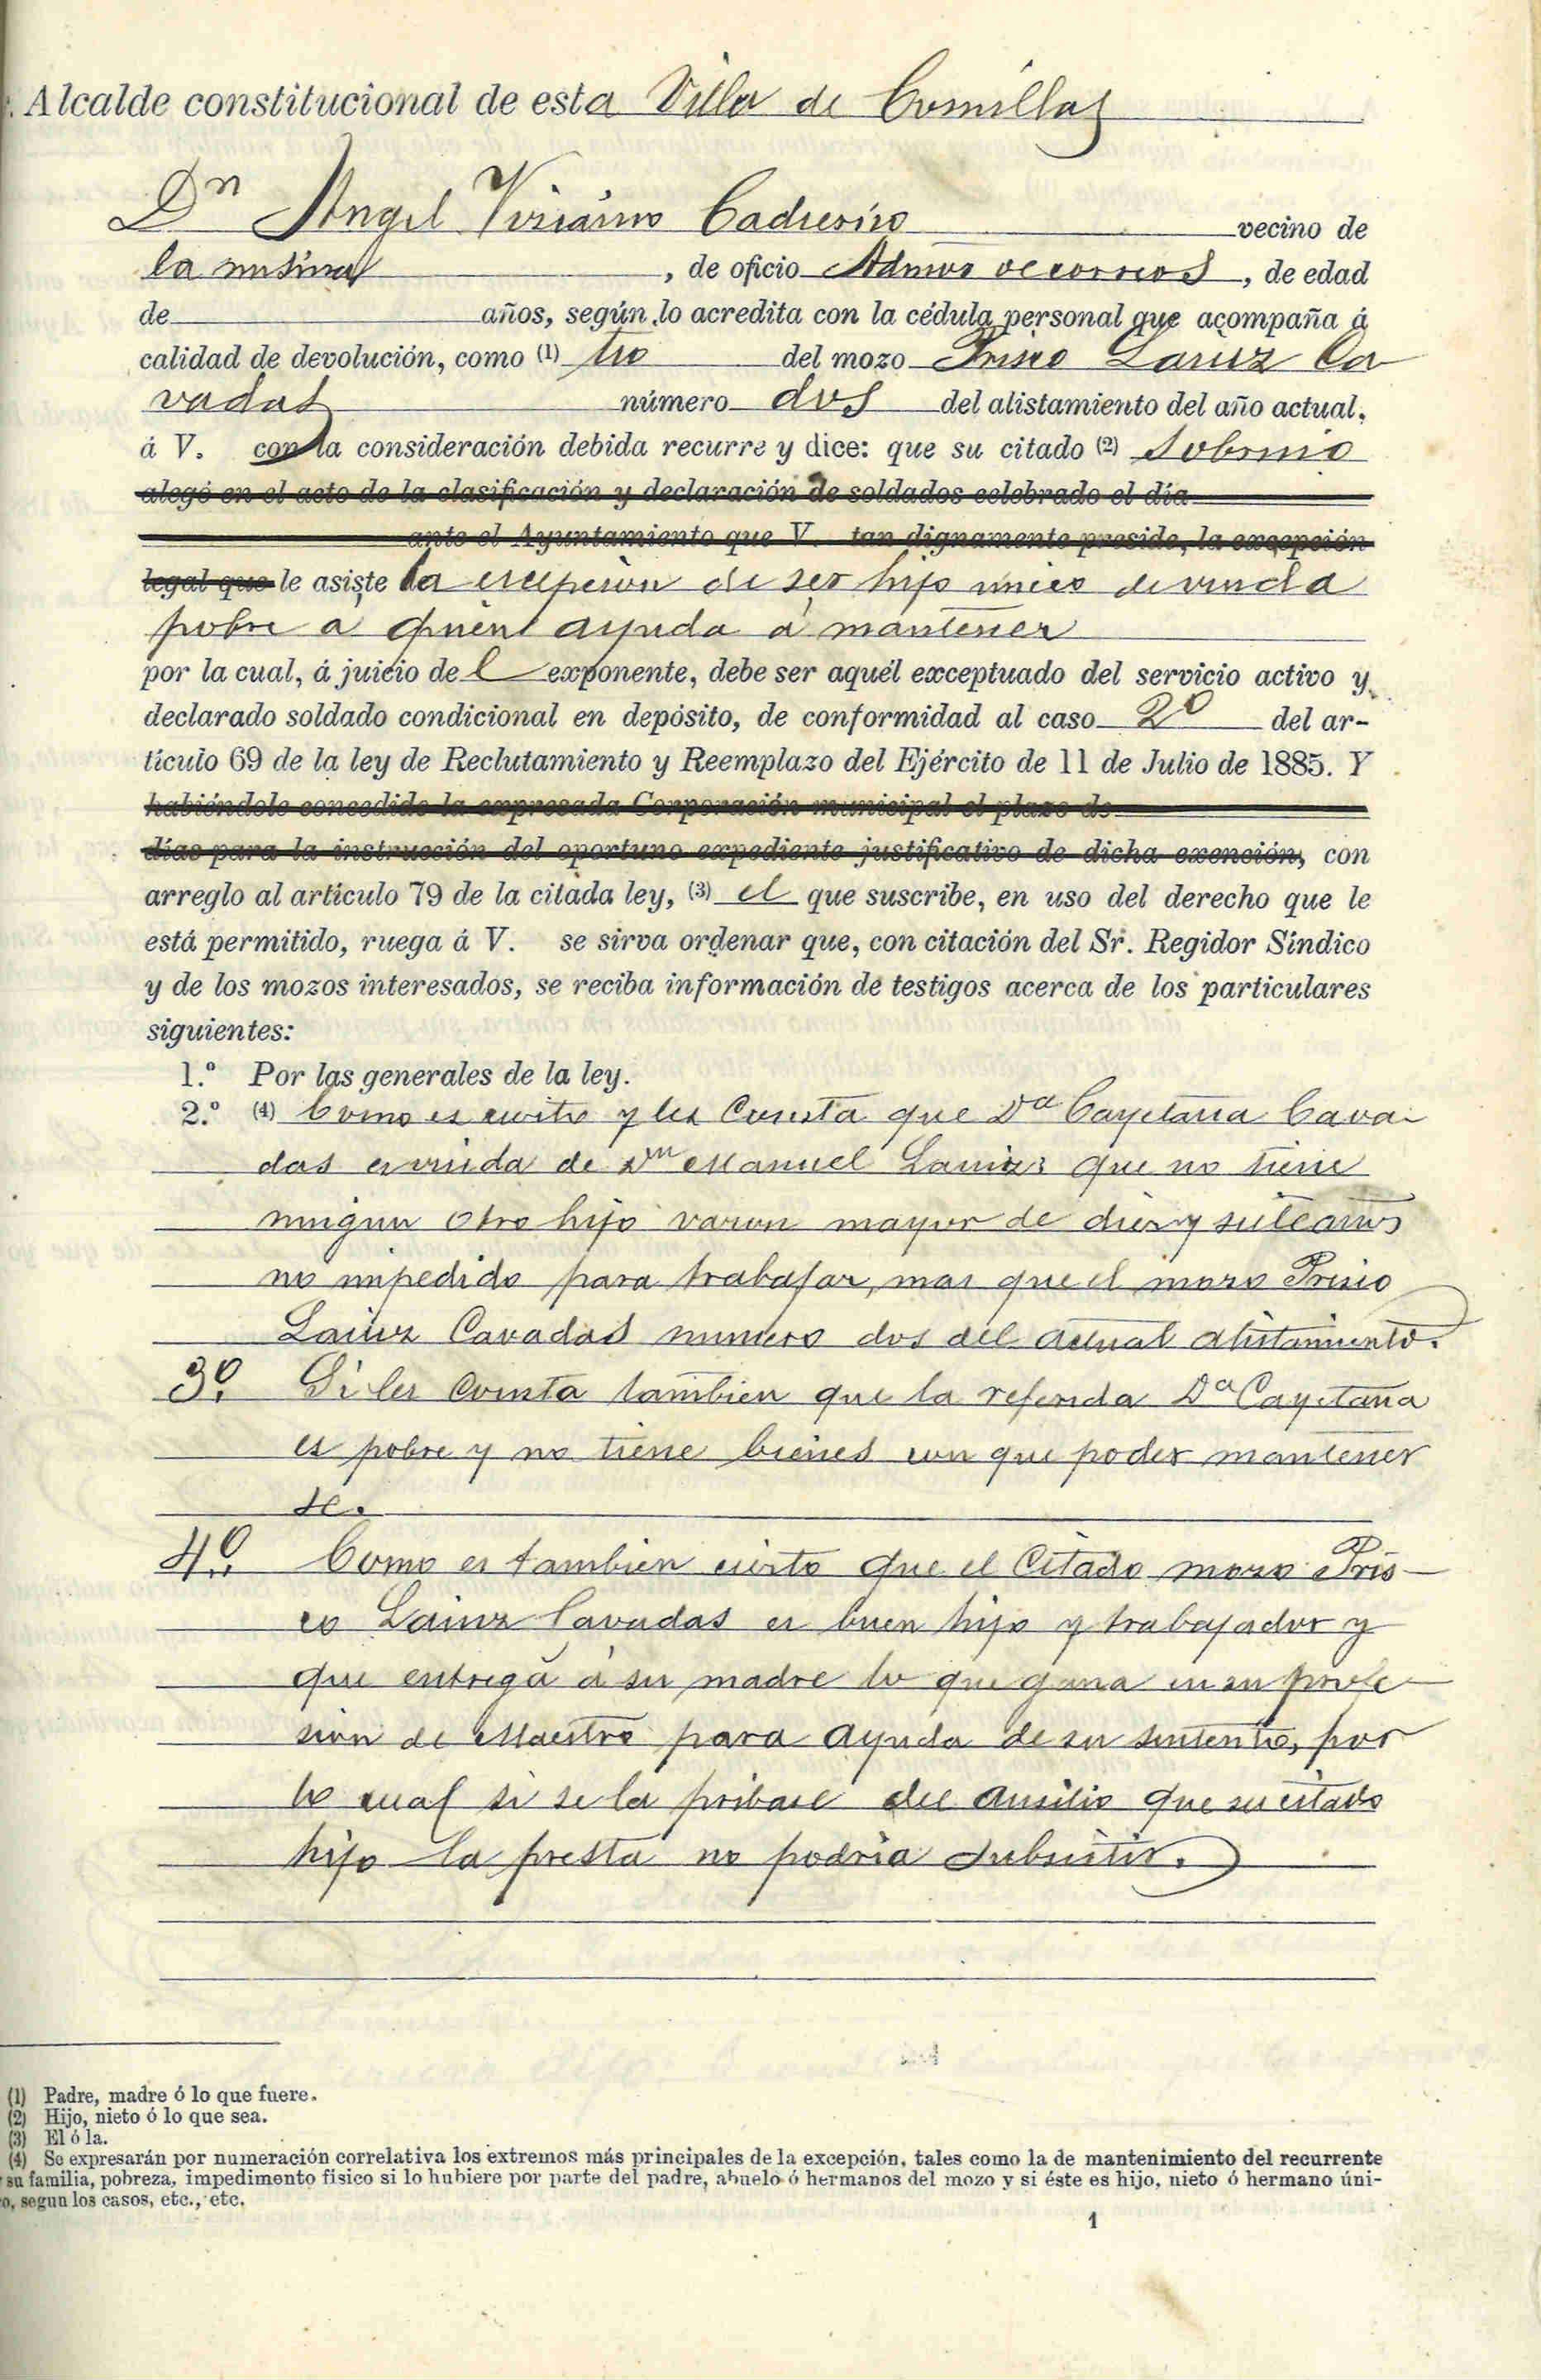 . Alcalde constitucional de esta Villa de Comillas
Dn Angel Viviano Cadierno vecino de
la misma, de oficio Admor de correos, de edad
de años, según lo acredita con la cédula personal que acompaña á
calidad de devolución, como (1) tio del mozo Prisco Lainz Ca
vadas número dos del alistamiento del año actual,
á V. con la consideración debida recurre y dice: que su citado (2) sobrino
alegó en el acto de la clasificación y declaración de soldados celebrado el día
ante el Ayuntamiento que V. tan dignamente preside, la excepción
legal que le asiste la escepcion de ser hijo unico de viuda
pobre a quien ayuda á mantener
por la cual, á juicio del exponente, debe ser aquél exceptuado del servicio activo y
declarado soldado condicional en depósito, de conformidad al caso 2º del ar-
tículo 69 de la ley de Reclutamiento y Reemplazo del Ejército de 11 de Julio de 1885. Y
habiéndole concedido la expresada Corporación municipal el plazo de
días para la instrucción del oportuno expediente justificativo de dicha exención, con
arreglo al artículo 79 de la citada ley, (3) el que suscribe, en uso del derecho que le
está permitido, ruega á V. se sirva ordenar que, con citación del Sr. Regidor Síndico
y de los mozos interesados, se reciba información de testigos acerca de los particulares
siguientes:
1.º Por las generales de la ley.
2.º (4) Como es cierto y les Consta que Da Cayetana Cava-
das es viuda de Dn Manuel Lainz: que no tiene
ningun otro hijo varon mayor de diez y siete años
no impedido para trabajar, mas que el mozo Prisco
Lainz Cavadas numero dos del actual alistamiento.
3º. Si les Consta tambien que la referida Da Cayetana
es pobre y no tiene bienes con que poder mantener
se.
4º. Como es tambien cierto que el Citado mozo Pris-
co Lainz Cavadas es buen hijo y trabajador y
que entrega á su madre lo que gana en su profe-
sion de Maestro para ayuda de su sustento, por
lo cual si se la pribase del ausilio que su citado
hijo la presta no podria subsistir.
(1) Padre, madre ó lo que fuere.
(2) Hijo, nieto ó lo que sea.
(3) El ó la.
(4) Se expresarán por numeración correlativa los extremos más principales de la excepción, tales como la de mantenimiento del recurrente
su familia, pobreza, impedimento físico si lo hubiere por parte del padre, abuelo ó hermanos del mozo y si éste es hijo, nieto ó hermano úni-
o, segun los casos, etc., etc.
1